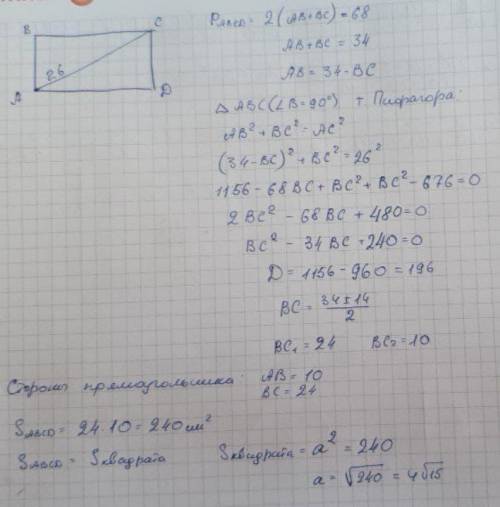 B
C
26
A
D
P_ABCD = 2(AB+BC) = 68
AB+BC = 34
AB = 34-BC
△ABC (∠B=90°) т. Пифагора:
AB² + BC² = AC²
(34-BC)² + BC² = 26²
1156 - 68BC + BC² + BC² - 676 = 0
2BC² - 68BC + 480 = 0
BC² - 34BC + 240 = 0
D = 1156 - 960 = 196
BC = (34±14)/2
BC₁ = 24 BC₂ = 10
Стороны прямоугольника: AB = 10
BC = 24
S_ABCD = 24·10 = 240 см²
S_ABCD = S квадрата S квадрата = a² = 240
a = √240 = 4√15